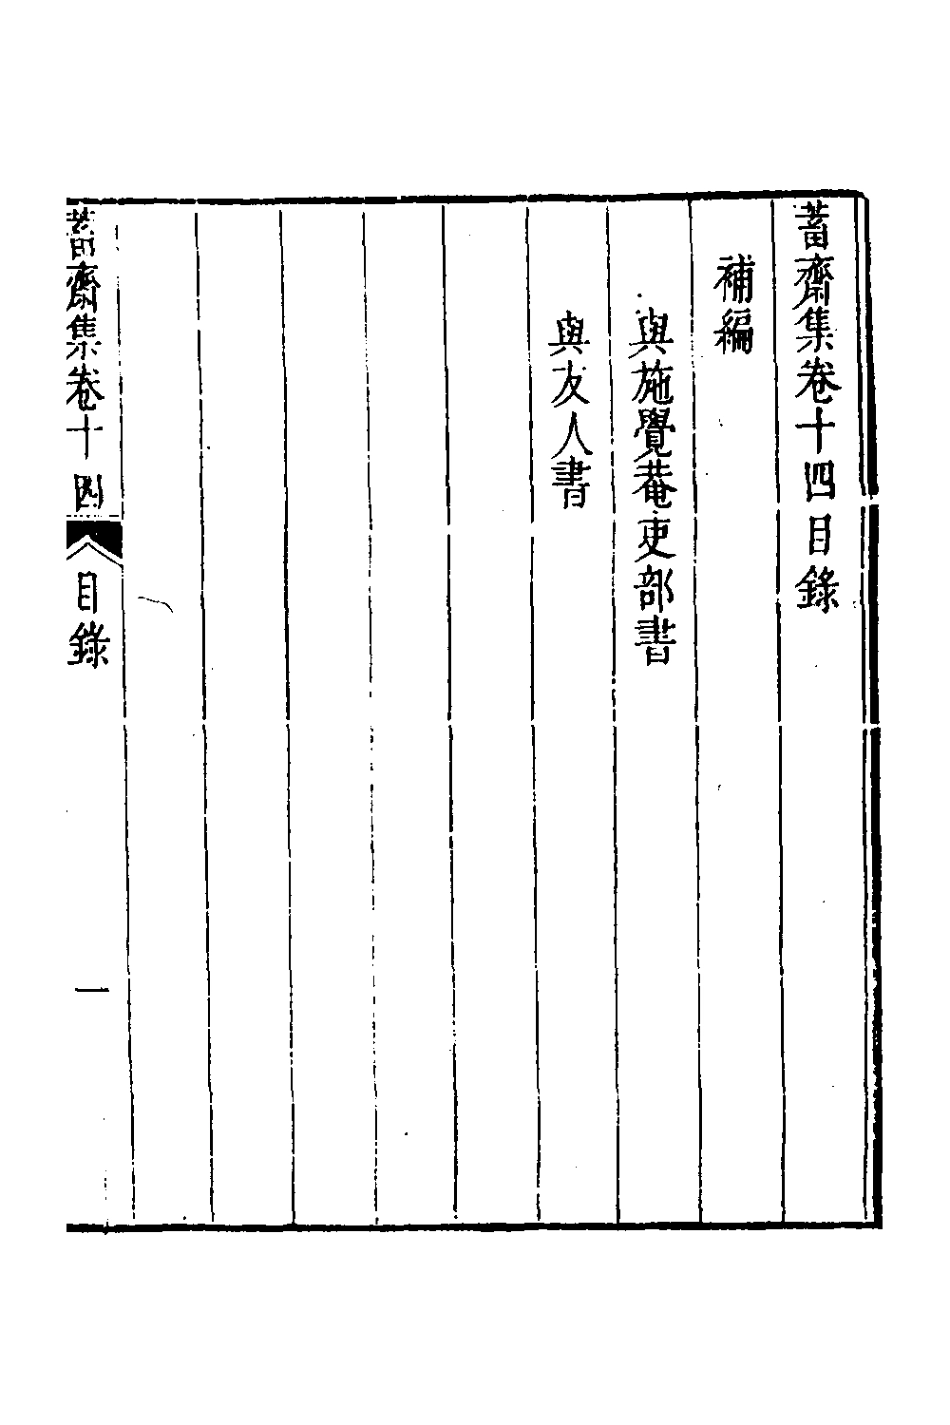 蓄齋集卷十四目錄
補編
與施覺菴吏部書
與友人書
蓄齋集卷十四 目錄 一